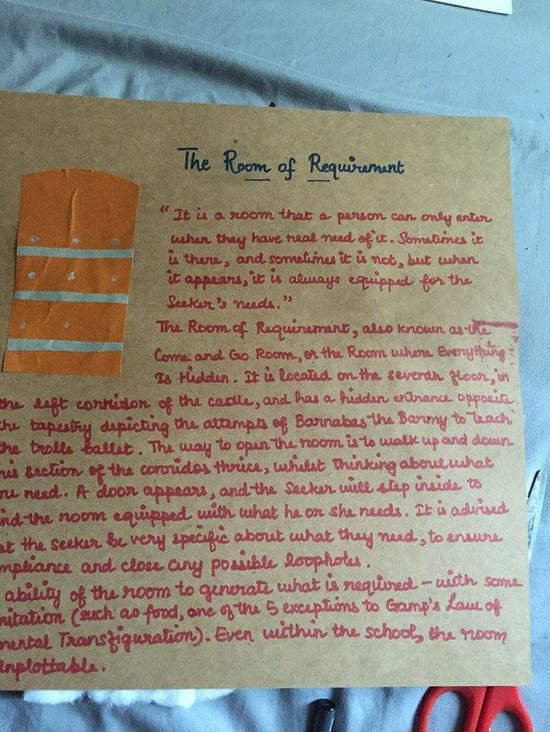 The Room of Requirement
"It is a room that a person can only enter
when they have real need of it. Sometimes it
is there, and sometimes it is not, but when
it appears, it is always equipped for the
Seeker's needs."
The Room of Requirement, also known as the
Come and Go Room, or the Room where Everything
Is Hidden. It is located on the seventh floor, in
the left corridor of the castle, and has a hidden entrance opposite
the tapestry depicting the attempts of Barnabas the Barmy to teach
the trolls ballet. The way to open the room is to walk up and down
section of the corridor thrice, whilst thinking about what
need. A door appears, and the Seeker will step inside to
the room equipped with what he or she needs. It is advised
the seeker be very specific about what they need, to ensure
and close any possible loopholes.
ability of the room to generate what is required - with some
(such as food, one of the 5 exceptions to Gamp's Law of
Transfiguration). Even within the school, the room